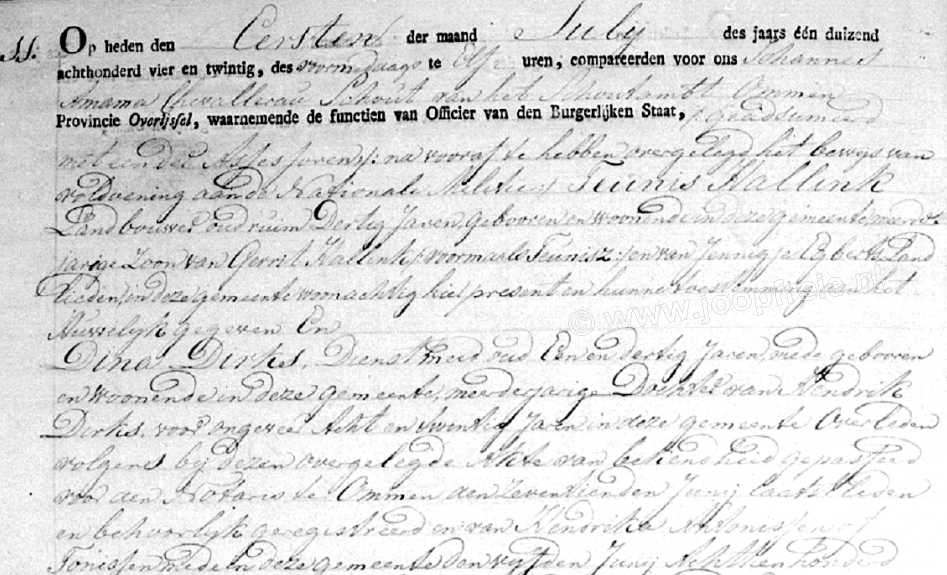 11. Op heden den Eersten der maand July des jaars één duizend
achthonderd vier en twintig, des voormiddags te Elf uren, compareerden voor ons Johannes
Amama Chevallerau Schout van het Schoutambt Ommen
Provincie Overijssel, waarnemende de functien van Officier van den Burgerlijken Staat, geadsumeerd
met een der Assessoren na vooraf te hebben overgelegd het bewys van
voldoening aan de Nationale Militie Teunis Hallink
Landbouwer oud ruim Dertig Jaren, gebooren en woonende in deze gemeente, meerder
jarige Zoon van Gerrit Hallink voormaals Teunisz: en van Jennigje Egberts Land
lieden, in deze gemeente woonachtig hier present en hunne toestemming aan het
Huwelyk gegeven En
Dina Dirks, Dienstmeid oud Een en dertig Jaren, mede gebooren
en woonende in deze gemeente, meerderjarige Dochter van Hendrik
Dirks, voor ongeveer Acht en twintig Jaren in deze gemeente Overleden
volgens bij dezen overgelegde Akte van bekendheid gepasseerd
voor den Notaris te Ommen den Zeventienden Junij laatstleden
en behoorlijk geregistreerd en van Hendrika Antonissen of
Tonissen mede in deze gemeente den vyfden Junij Achttien honderd
© www.joopninie.nl